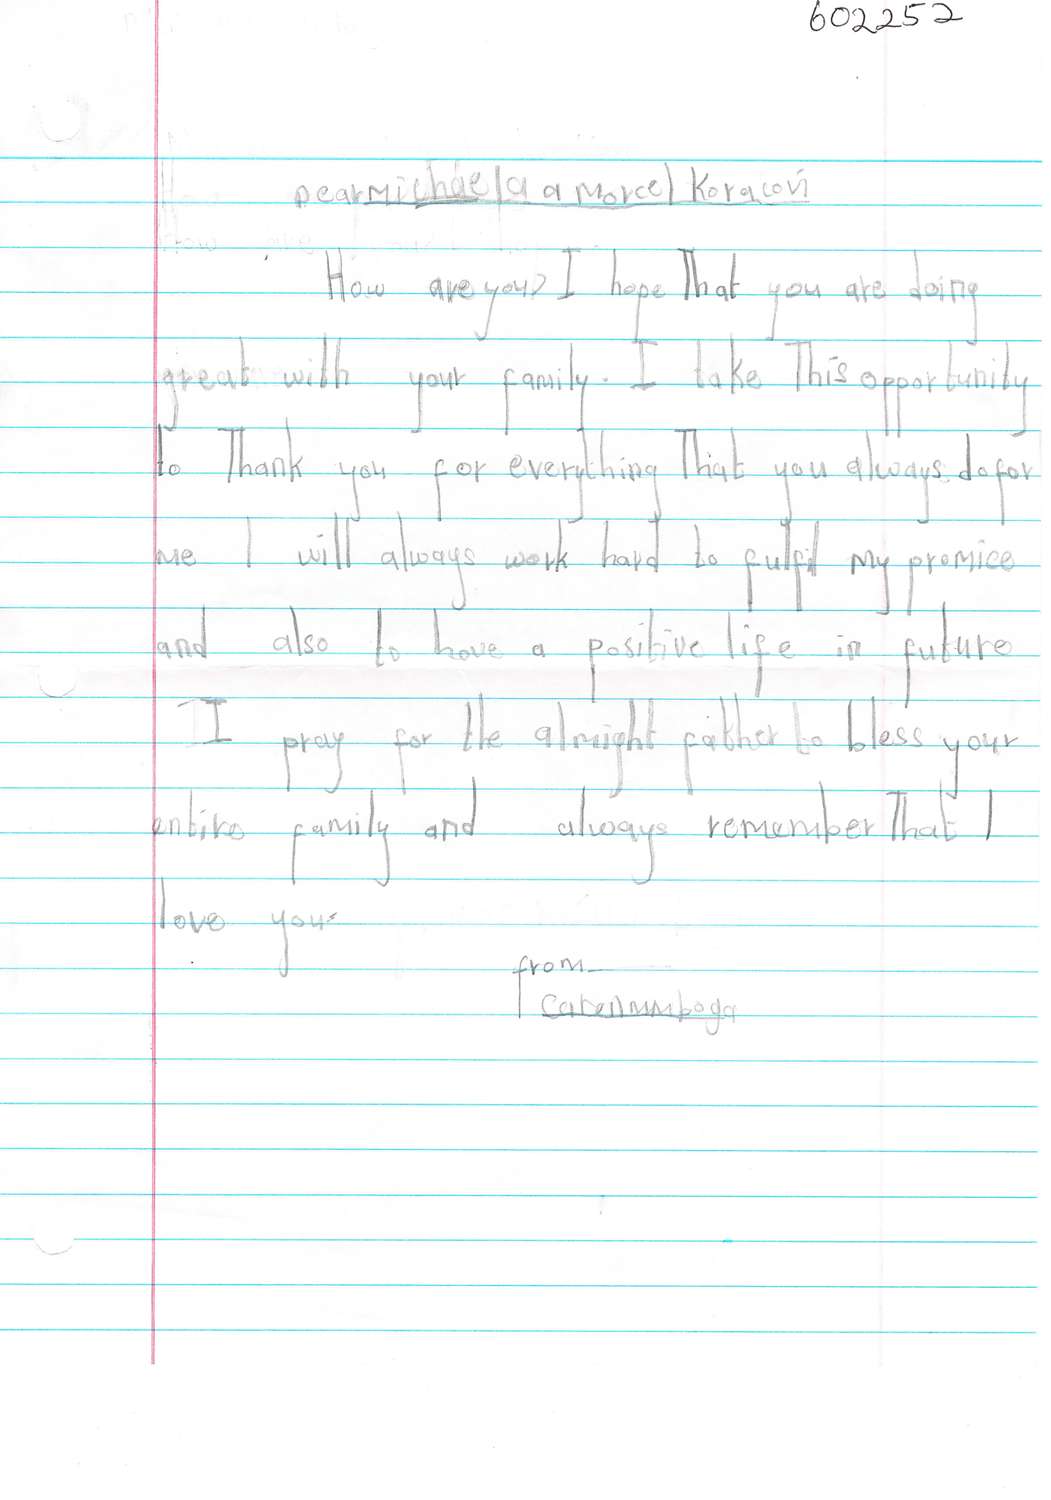 602252
Dear Michaela a Marcel Koracovi
How are you? I hope That you are doing
great with your family. I take This opportunity
to Thank you for everything That you always do for
me I will always work hard to fulfil my promice
and also to have a positive life in future
I pray for the almight father to bless your
entire family and always remember That I
love you.
from